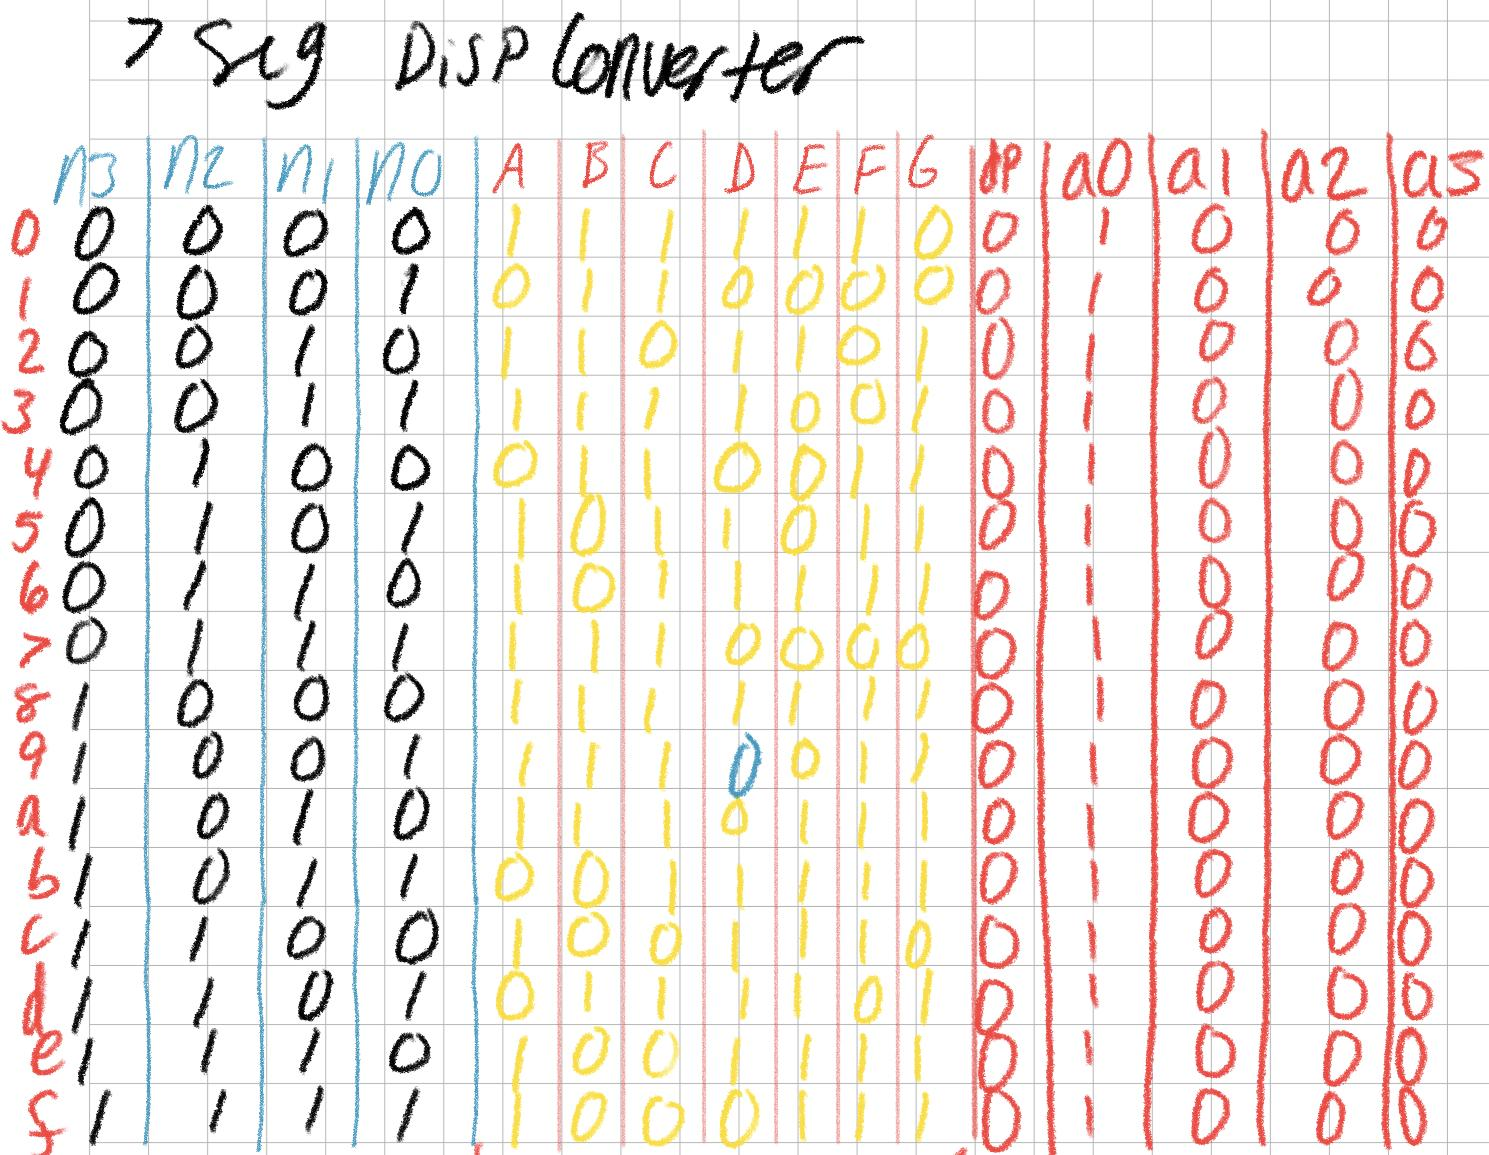 7 Seg Disp Converter
n3 n2 n1 n0 A B C D E F G dp a0 a1 a2 a3
0 0 0 0 0 1 1 1 1 1 1 0 0 1 0 0 0
1 0 0 0 1 0 1 1 0 0 0 0 0 1 0 0 0
2 0 0 1 0 1 1 0 1 1 0 1 0 1 0 0 0
3 0 0 1 1 1 1 1 1 0 0 1 0 1 0 0 0
4 0 1 0 0 0 1 1 0 0 1 1 0 1 0 0 0
5 0 1 0 1 1 0 1 1 0 1 1 0 1 0 0 0
6 0 1 1 0 1 0 1 1 1 1 1 0 1 0 0 0
7 0 1 1 1 1 1 1 0 0 0 0 0 1 0 0 0
8 1 0 0 0 1 1 1 1 1 1 1 0 1 0 0 0
9 1 0 0 1 1 1 1 0 0 1 1 0 1 0 0 0
a 1 0 1 0 1 1 1 0 1 1 1 0 1 0 0 0
b 1 0 1 1 0 0 1 1 1 1 1 0 1 0 0 0
c 1 1 0 0 1 0 0 1 1 1 0 0 1 0 0 0
d 1 1 0 1 0 1 1 1 1 0 1 0 1 0 0 0
e 1 1 1 0 1 0 0 1 1 1 1 0 1 0 0 0
f 1 1 1 1 1 0 0 0 1 1 1 0 1 0 0 0